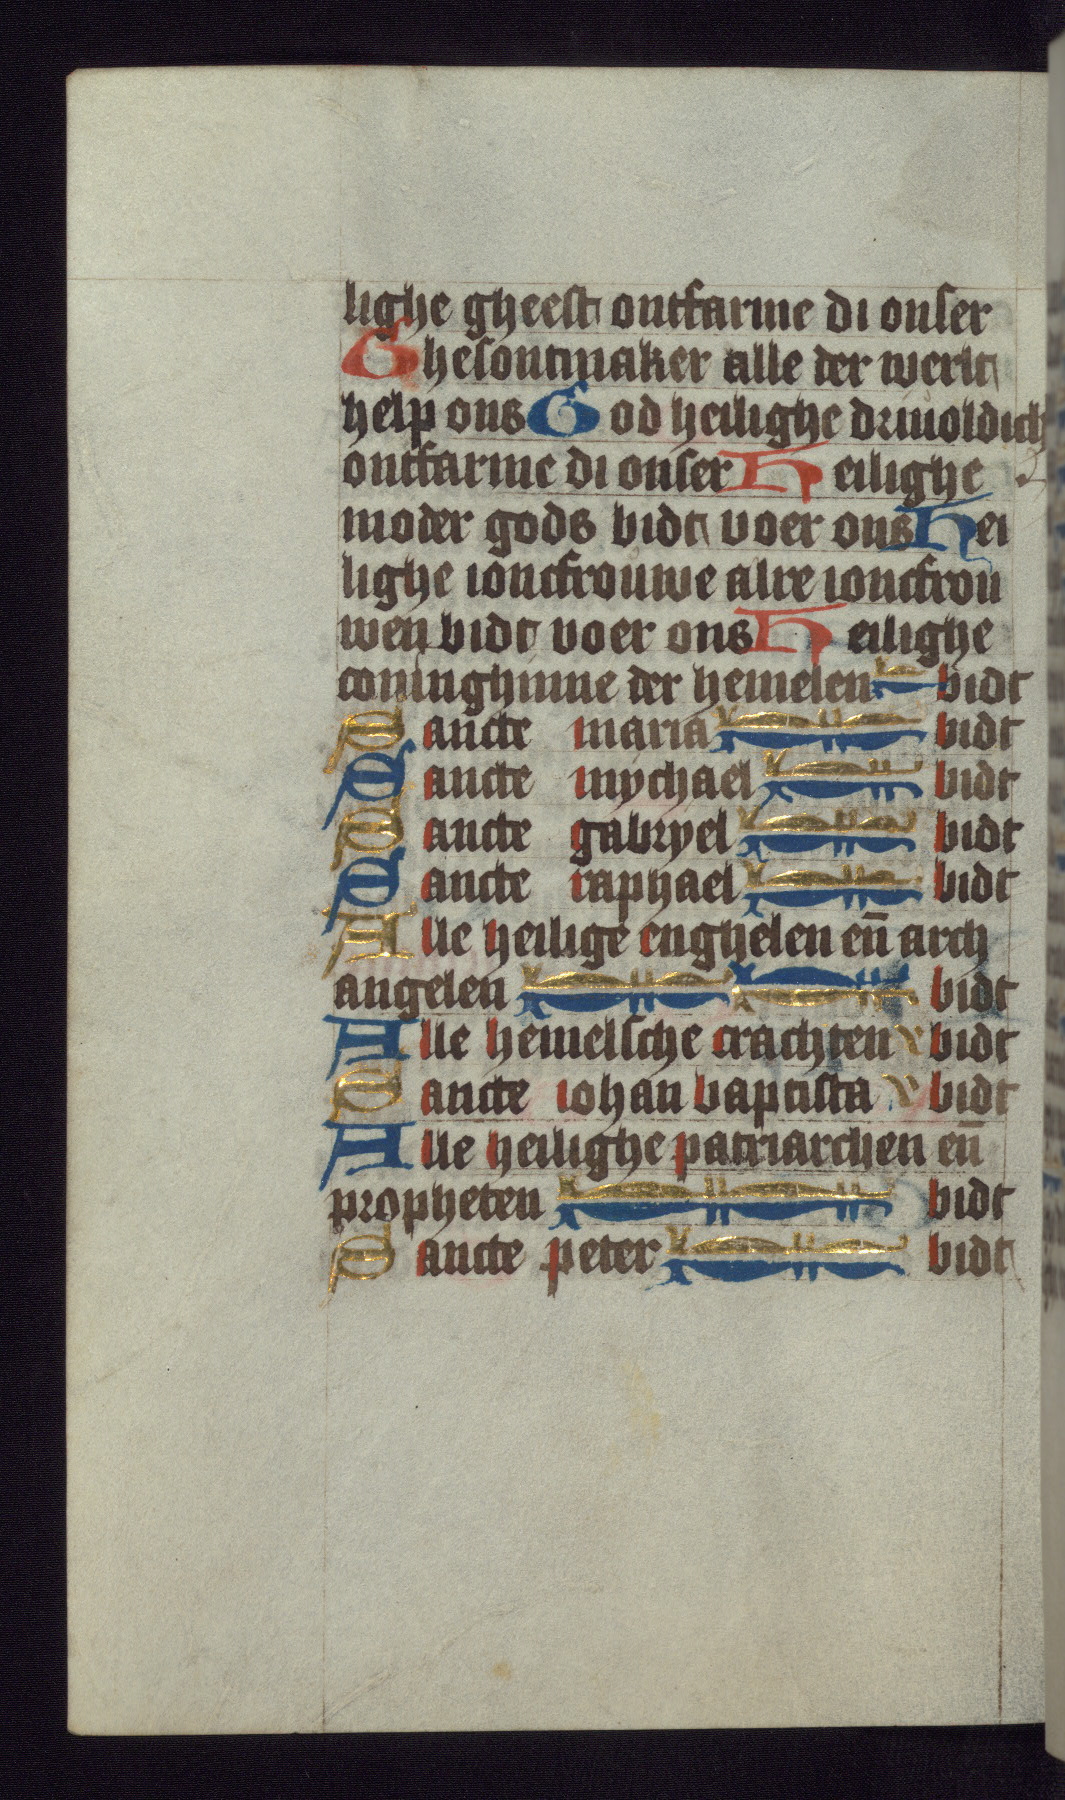 lighe gheest ontfarme di onser
Ghesontmaker alle der werlt
help ons God heilighe driuoldich
ontfarme di onser Heilighe
moder gods bidt voer ons Hei
lighe ioncfrouwe alre ioncfrou
wen bidt voer ons Heilighe
coninghinne der hemelen bidt
Sancte maria bidt
Sancte mychael bidt
Sancte gabryel bidt
Sancte raphael bidt
Alle heilige enghelen en̄ arch
angelen bidt
Alle hemelsche crachten bidt
Sancte iohan baptista bidt
Alle heilighe patriarchen en̄
propheten bidt
Sancte peter bidt